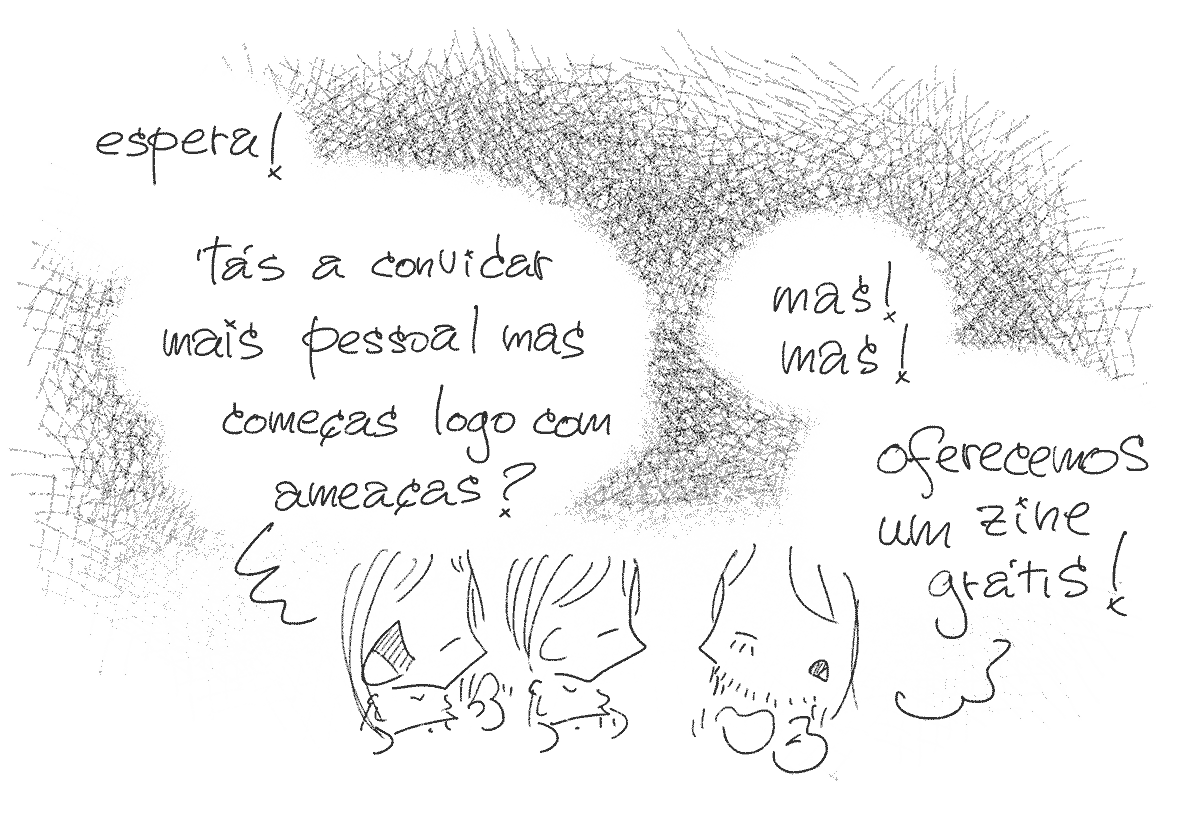 espera!
'tás a convidar
mais pessoal mas
começas logo com
ameaças?
mas!
mas!
oferecemos
um zine
grátis!